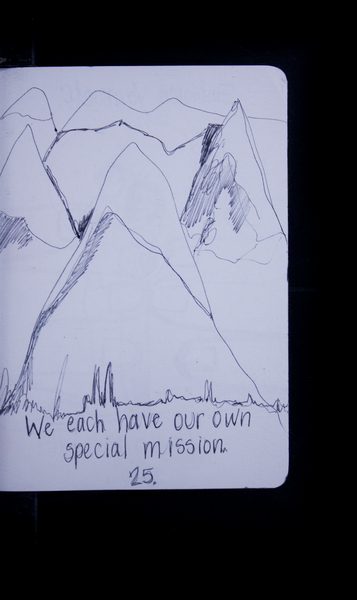 We each have our own
special mission.
25.